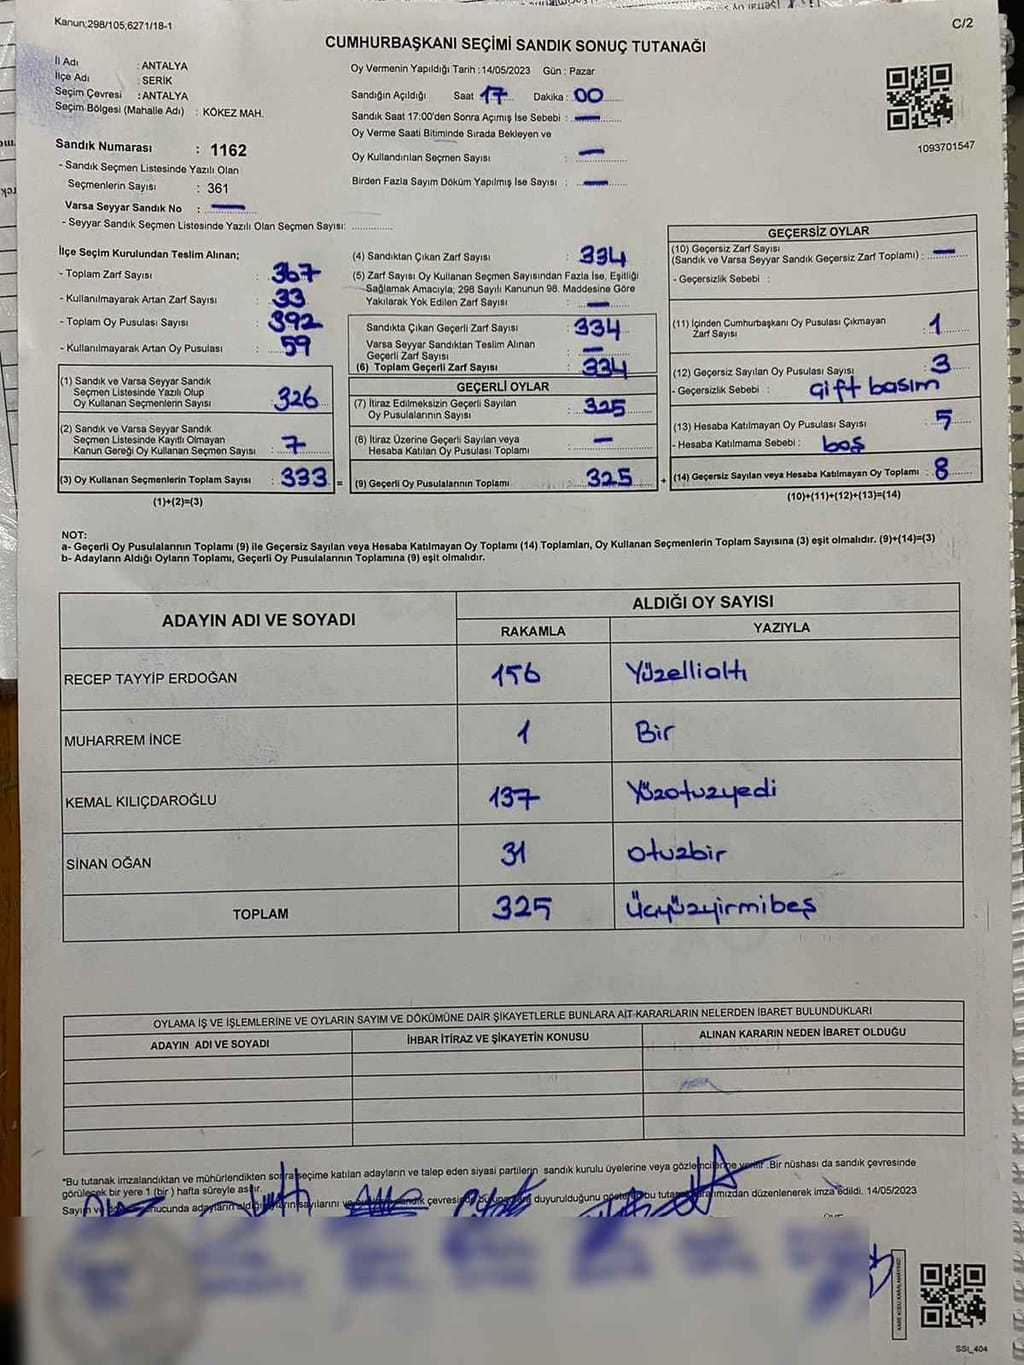 Kanun;298/105,6271/18-1
C/2
CUMHURBAŞKANI SEÇİMİ SANDIK SONUÇ TUTANAĞI
İl Adı : ANTALYA
İlçe Adı : SERİK
Seçim Çevresi : ANTALYA
Seçim Bölgesi (Mahalle Adı) : KÖKEZ MAH.
Sandık Numarası : 1162
- Sandık Seçmen Listesinde Yazılı Olan
Seçmenlerin Sayısı : 361
Varsa Seyyar Sandık No : —
- Seyyar Sandık Seçmen Listesinde Yazılı Olan Seçmen Sayısı: ..............
Oy Vermenin Yapıldığı Tarih :14/05/2023 Gün : Pazar
Sandığın Açıldığı Saat 17 Dakika : 00
Sandık Saat 17:00'den Sonra Açımış İse Sebebi : —
Oy Verme Saati Bitiminde Sırada Bekleyen ve
Oy Kullandırılan Seçmen Sayısı : —
Birden Fazla Sayım Döküm Yapılmış İse Sayısı : —
1093701547
İlçe Seçim Kurulundan Teslim Alınan;
- Toplam Zarf Sayısı : 367
- Kullanılmayarak Artan Zarf Sayısı : 33
- Toplam Oy Pusulası Sayısı : 392
- Kullanılmayarak Artan Oy Pusulası : 59
(1) Sandık ve Varsa Seyyar Sandık
Seçmen Listesinde Yazılı Olup
Oy Kullanan Seçmenlerin Sayısı : 326
(2) Sandık ve Varsa Seyyar Sandık
Seçmen Listesinde Kayıtlı Olmayan
Kanun Gereği Oy Kullanan Seçmen Sayısı : 7
(3) Oy Kullanan Seçmenlerin Toplam Sayısı : 333 =
(1)+(2)=(3)
(4) Sandıktan Çıkan Zarf Sayısı : 334
(5) Zarf Sayısı Oy Kullanan Seçmen Sayısından Fazla İse, Eşitliği
Sağlamak Amacıyla; 298 Sayılı Kanunun 98. Maddesine Göre
Yakılarak Yok Edilen Zarf Sayısı : —
Sandıkta Çıkan Geçerli Zarf Sayısı : 334
Varsa Seyyar Sandıktan Teslim Alınan
Geçerli Zarf Sayısı : —
(6) Toplam Geçerli Zarf Sayısı : 334
GEÇERLİ OYLAR
(7) İtiraz Edilmeksizin Geçerli Sayılan
Oy Pusulalarının Sayısı : 325
(8) İtiraz Üzerine Geçerli Sayılan veya
Hesaba Katılan Oy Pusulası Toplamı : —
(9) Geçerli Oy Pusulalarının Toplamı : 325 +
GEÇERSİZ OYLAR
(10) Geçersiz Zarf Sayısı
(Sandık ve Varsa Seyyar Sandık Geçersiz Zarf Toplamı) : —
- Geçersizlik Sebebi :
(11) İçinden Cumhurbaşkanı Oy Pusulası Çıkmayan
Zarf Sayısı : 1
(12) Geçersiz Sayılan Oy Pusulası Sayısı : 3
- Geçersizlik Sebebi : Çift basım
(13) Hesaba Katılmayan Oy Pusulası Sayısı : 5
- Hesaba Katılmama Sebebi : boş
(14) Geçersiz Sayılan veya Hesaba Katılmayan Oy Toplamı : 8
(10)+(11)+(12)+(13)=(14)
NOT:
a- Geçerli Oy Pusulalarının Toplamı (9) ile Geçersiz Sayılan veya Hesaba Katılmayan Oy Toplamı (14) Toplamları, Oy Kullanan Seçmenlerin Toplam Sayısına (3) eşit olmalıdır. (9)+(14)=(3)
b- Adayların Aldığı Oyların Toplamı, Geçerli Oy Pusulalarının Toplamına (9) eşit olmalıdır.
ADAYIN ADI VE SOYADI
ALDIĞI OY SAYISI
RAKAMLA YAZIYLA
RECEP TAYYİP ERDOĞAN 156 Yüzellialtı
MUHARREM İNCE 1 Bir
KEMAL KILIÇDAROĞLU 137 Yüzotuzyedi
SİNAN OĞAN 31 otuzbir
TOPLAM 325 üçyüzyirmibeş
OYLAMA İŞ VE İŞLEMLERİNE VE OYLARIN SAYIM VE DÖKÜMÜNE DAİR ŞİKAYETLERLE BUNLARA AİT KARARLARIN NELERDEN İBARET BULUNDUKLARI
ADAYIN ADI VE SOYADI İHBAR İTİRAZ VE ŞİKAYETİN KONUSU ALINAN KARARIN NEDEN İBARET OLDUĞU
*Bu tutanak imzalandıktan ve mühürlendikten sonra seçime katılan adayların ve talep eden siyasi partilerin sandık kurulu üyelerine veya gözlemcilerine verilir .Bir nüshası da sandık çevresinde
görülecek bir yere 1 (bir ) hafta süreyle asılır.
Sayım ve sonucunda adayların sayılarını ve sandık çevresinde duyurulduğunu bu düzenlenerek imza edildi. 14/05/2023
KARE KODU KARALAMAYINIZ!
SSİ_404